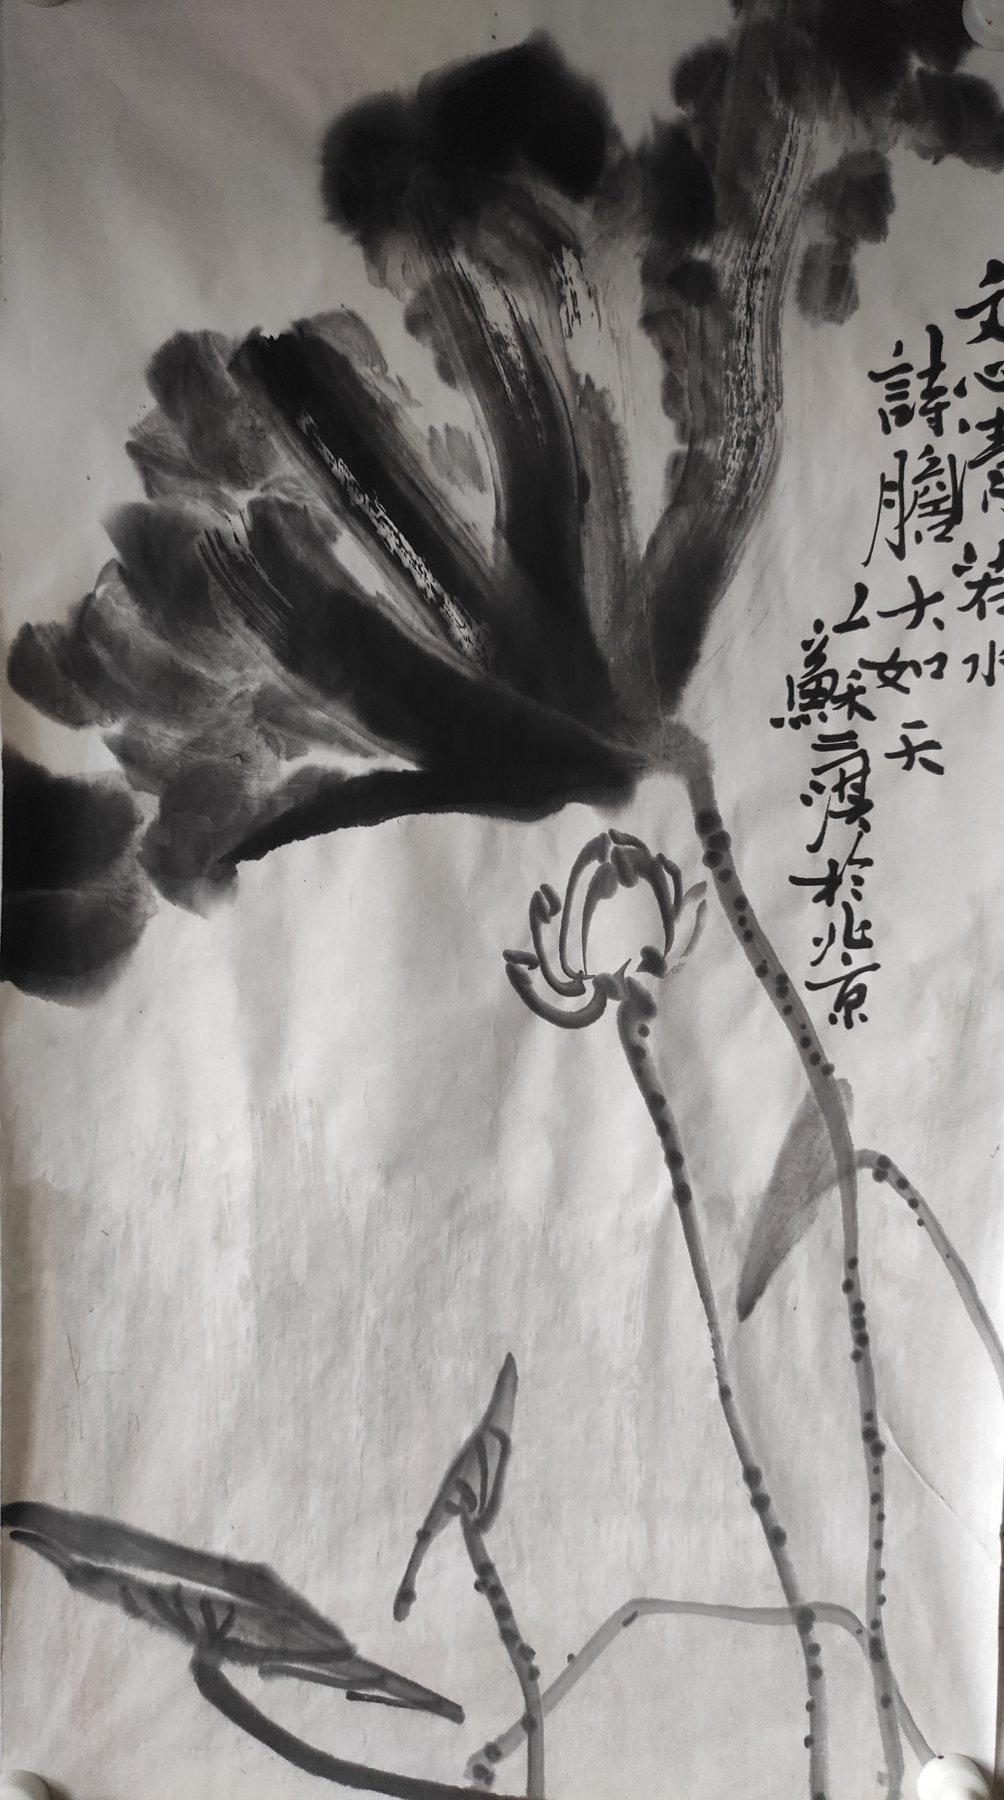 文心清若水
詩膽大如天
江蘇三淇於北京